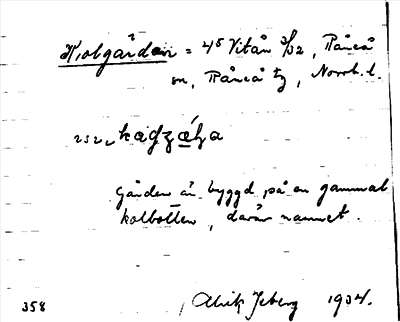 Kolgården = 4⁵ Vitån 3/32, Råneå
sn, Råneå tg, Norrb. l.
232
Gården är byggd på en gammal
kolbotten, därav namnet.
358 Ulrik 1934.